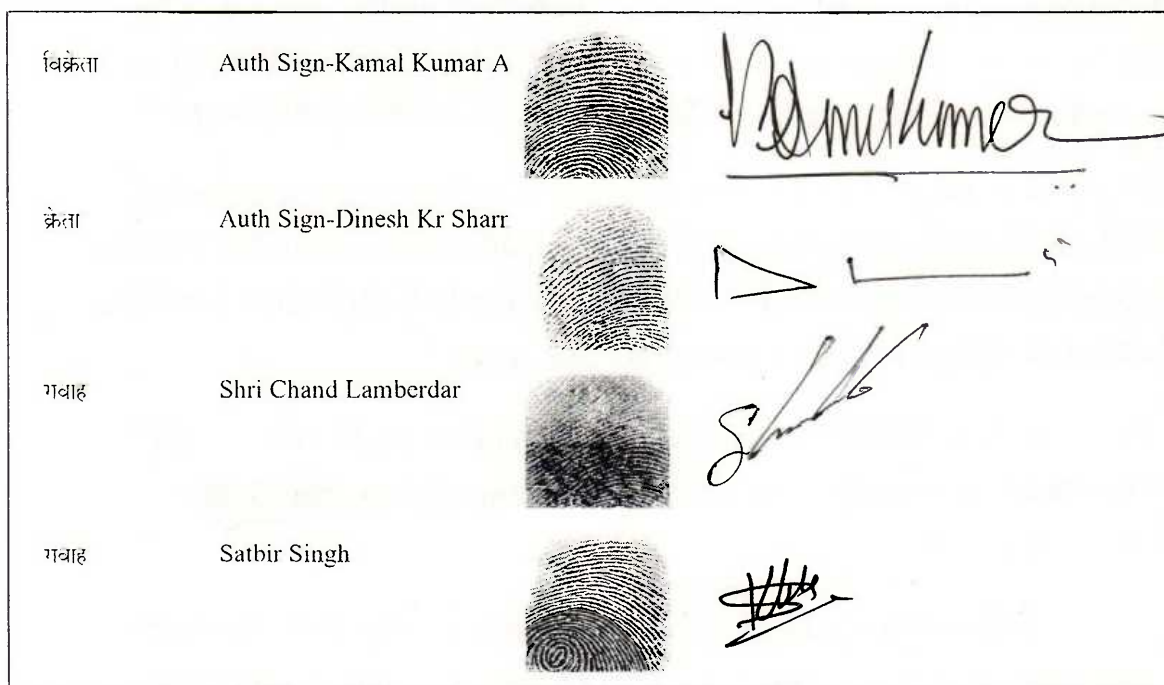 विक्रेता Auth Sign-Kamal Kumar A
क्रेता Auth Sign-Dinesh Kr Sharr
गवाह Shri Chand Lamberdar
गवाह Satbir Singh